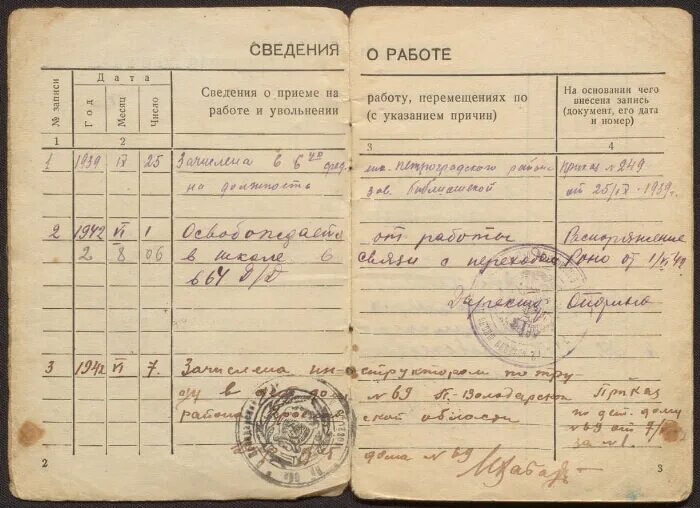 СВЕДЕНИЯ О РАБОТЕ
№ записи
Дата
Год
Месяц
Число
Сведения о приеме на работу, перемещениях по
работе и увольнении (с указанием причин)
На основании чего
внесена запись
(документ, его дата
и номер)
1 2 3 4
1 1939 IX 25 Зачислена в 6ую сред. шк. Петроградского района Приказ №249
на должность зав. библиотекой от 25/IX-1939г.
2 1942 VI 1 Освобождается от работы Распоряжение
2 8 06 в школе 6 связи с переходом Роно от 1/VI 42
в 64 Д/Д Директор
3 1942 VI 7. Зачислена инструктором по тру
ду в дет. дом №69 П-Володарской Приказ
района Ярославской области по дет. дому
№69 от 7/VI
за №1.
дома №69
2 3